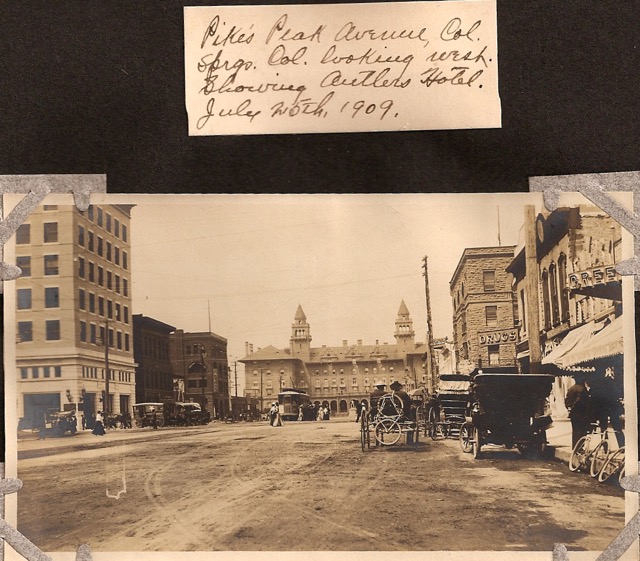 Pike's Peak Avenue, Col.
Sprgs. Col. looking west.
Showing Antlers Hotel.
July 25th, 1909.
DRUGS